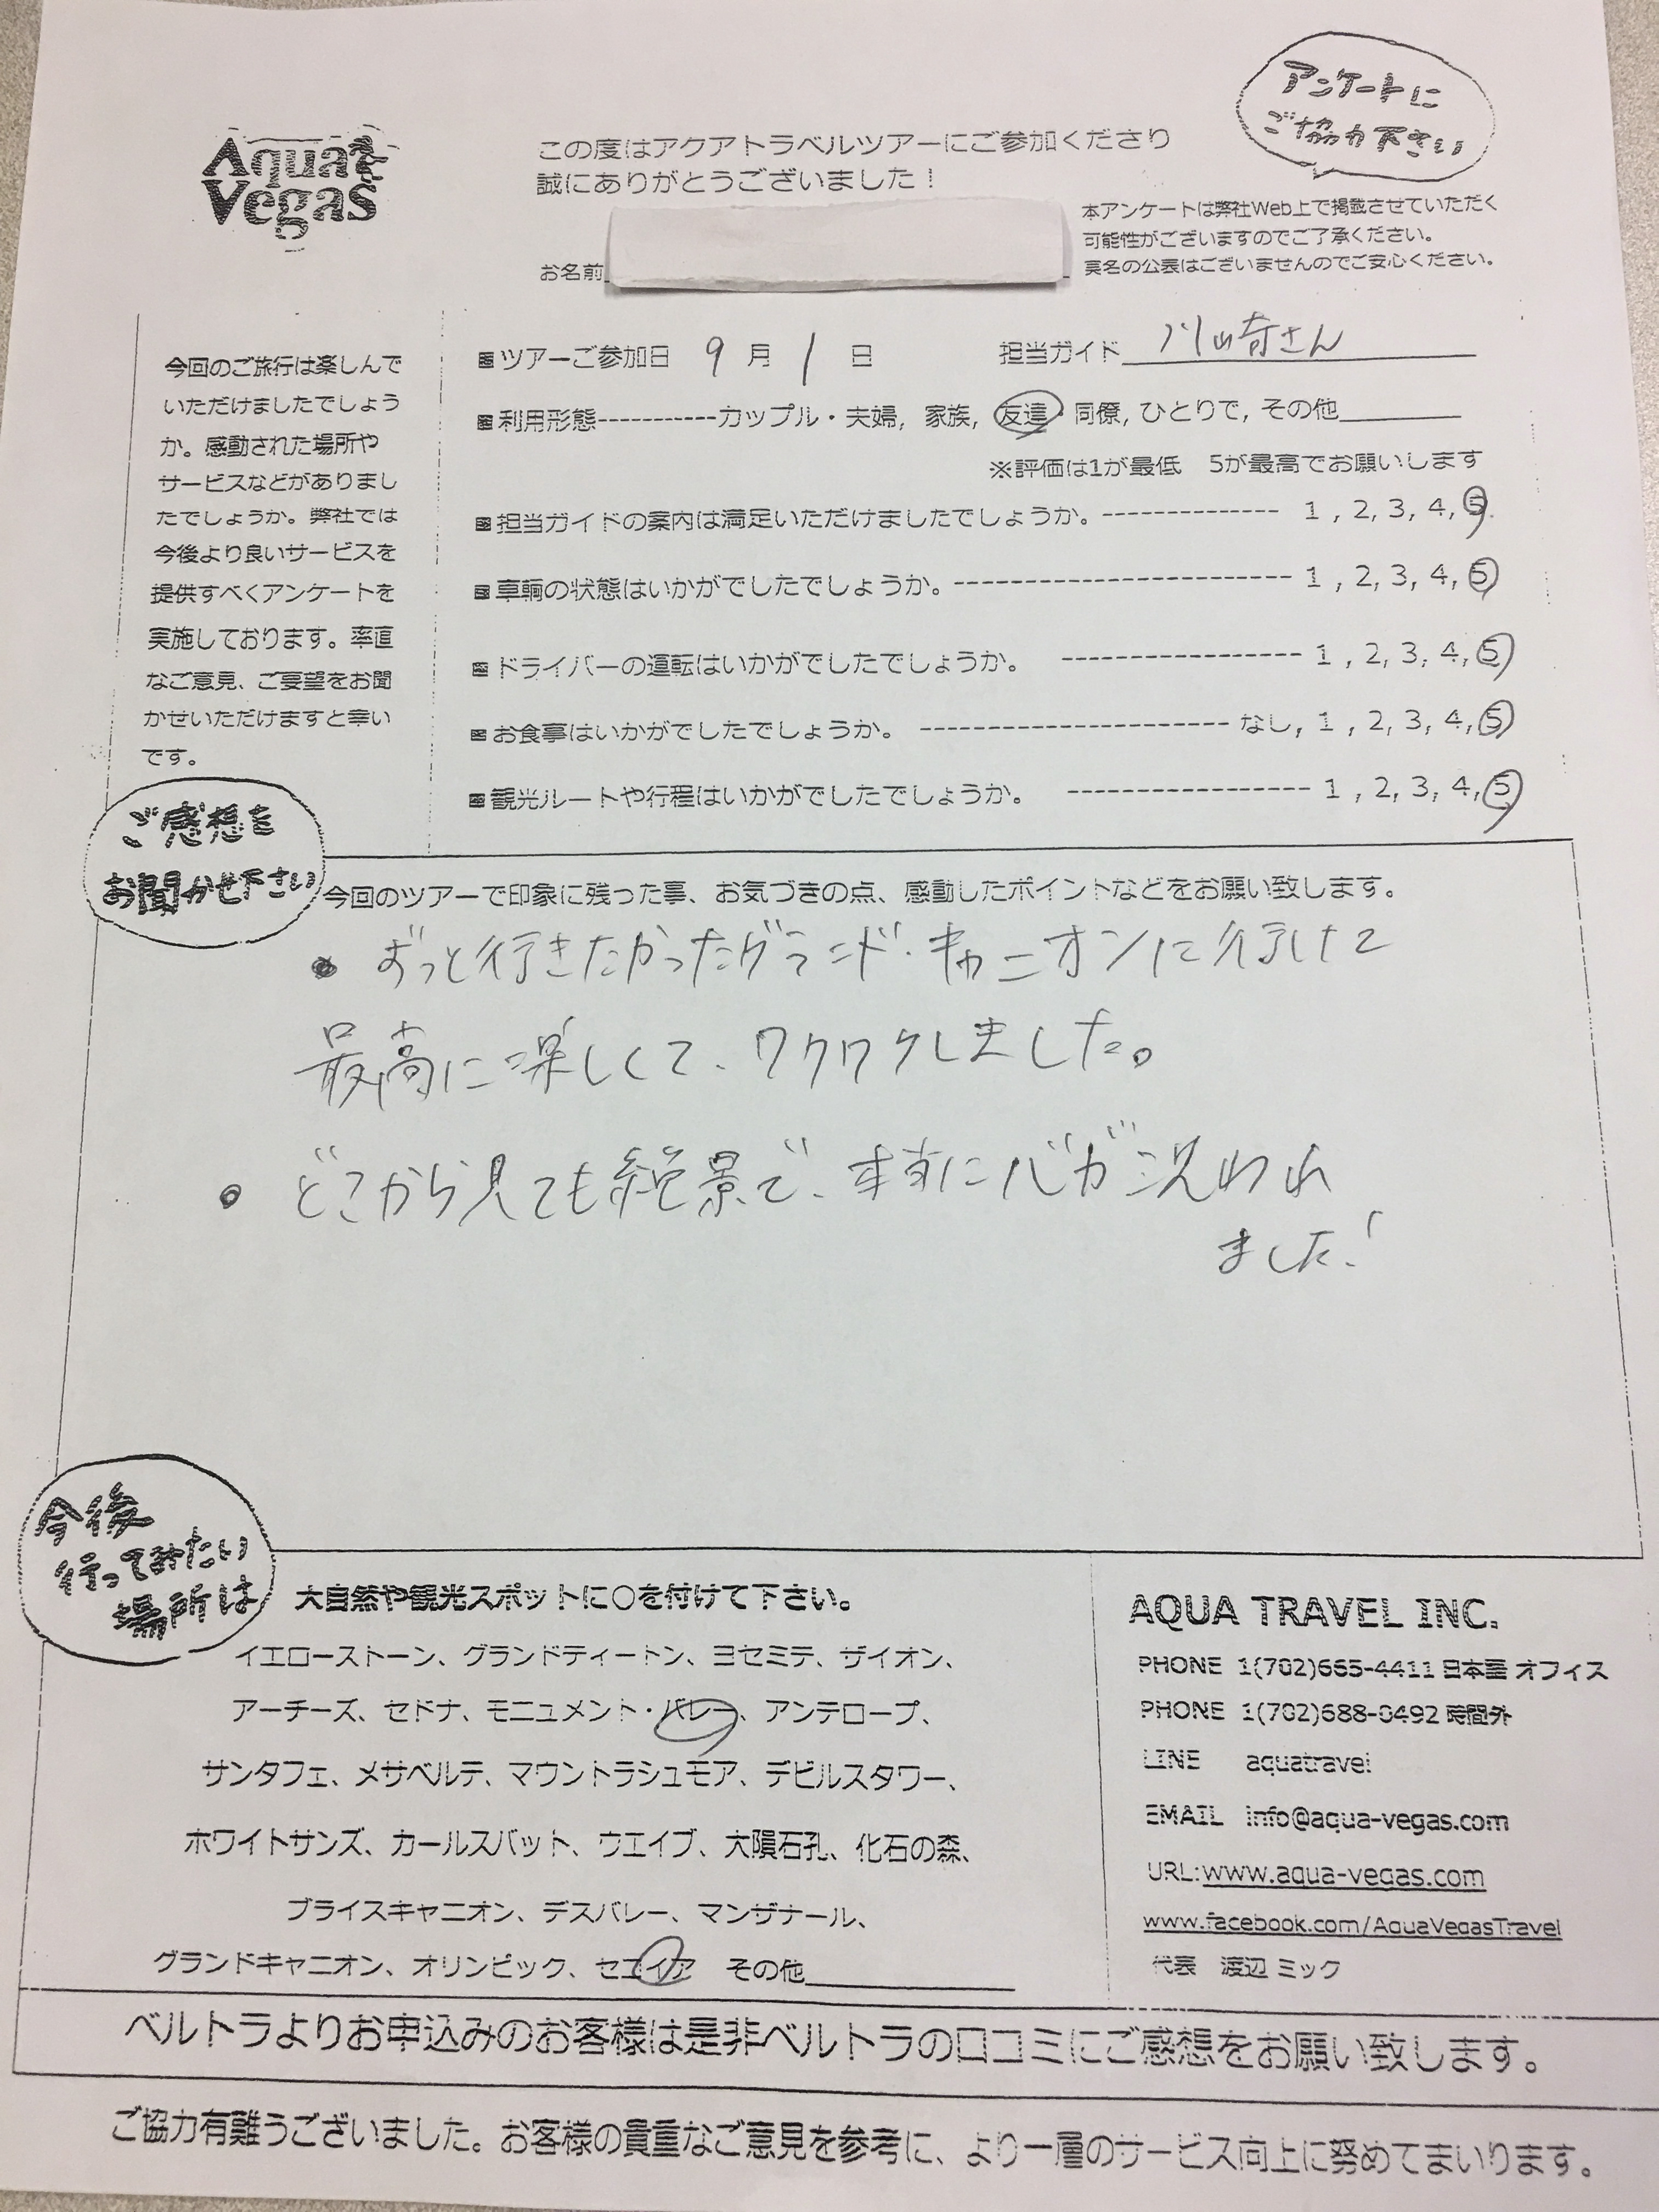 Aqua
Vegas
アンケートに
ご協力下さい
この度はアクアトラベルツアーにご参加くださり
誠にありがとうございました！
本アンケートは弊社Web上で掲載させていただく
可能性がございますのでご了承ください。
実名の公表はございませんのでご安心ください。
お名前
今回のご旅行は楽しんで
いただけましたでしょう
か。感動された場所や
サービスなどがありまし
たでしょうか。弊社では
今後より良いサービスを
提供すべくアンケートを
実施しております。率直
なご意見、ご要望をお聞
かせいただけますと幸い
です。
■ツアーご参加日 9 月 1 日 担当ガイド 川崎さん
■利用形態-----------カップル・夫婦, 家族, 友達・同僚, ひとりで, その他
※評価は1が最低 5が最高でお願いします
■担当ガイドの案内は満足いただけましたでしょうか。-------------- 1 , 2, 3, 4, 5
■車輌の状態はいかがでしたでしょうか。--------------------------- 1 , 2, 3, 4, 5
■ドライバーの運転はいかがでしたでしょうか。 ------------------- 1 , 2, 3, 4, 5
■お食事はいかがでしたでしょうか。 ------------------------- なし, 1 , 2, 3, 4, 5
■観光ルートや行程はいかがでしたでしょうか。 ------------------- 1 , 2, 3, 4, 5
ご感想を
お聞かせ下さい
今回のツアーで印象に残った事、お気づきの点、感動したポイントなどをお願い致します。
● ずっと行きたかったグランド・キャニオンに行けて
最高に楽しくて、ワクワクしました。
● どこから見ても絶景で、本当に心が洗われ
ました!
今後
行ってみたい
場所は
大自然や観光スポットに○を付けて下さい。
イエローストーン、グランドティートン、ヨセミテ、ザイオン、
アーチーズ、セドナ、モニュメント・バレー、アンテロープ、
サンタフェ、メサベルテ、マウントラシュモア、デビルスタワー、
ホワイトサンズ、カールスバット、ウエイブ、大隕石孔、化石の森、
ブライスキャニオン、デスバレー、マンザナール、
グランドキャニオン、オリンピック、セコイア その他
AQUA TRAVEL INC.
PHONE 1(702)665-4411 日本語 オフィス
PHONE 1(702)688-0492 時間外
LINE aquatravel
EMAIL info@aqua-vegas.com
URL:www.aqua-vegas.com
www.facebook.com/AquaVegasTravel
代表 渡辺 ミック
ベルトラよりお申込みのお客様は是非ベルトラの口コミにご感想をお願い致します。
ご協力有難うございました。お客様の貴重なご意見を参考に、より一層のサービス向上に努めてまいります。